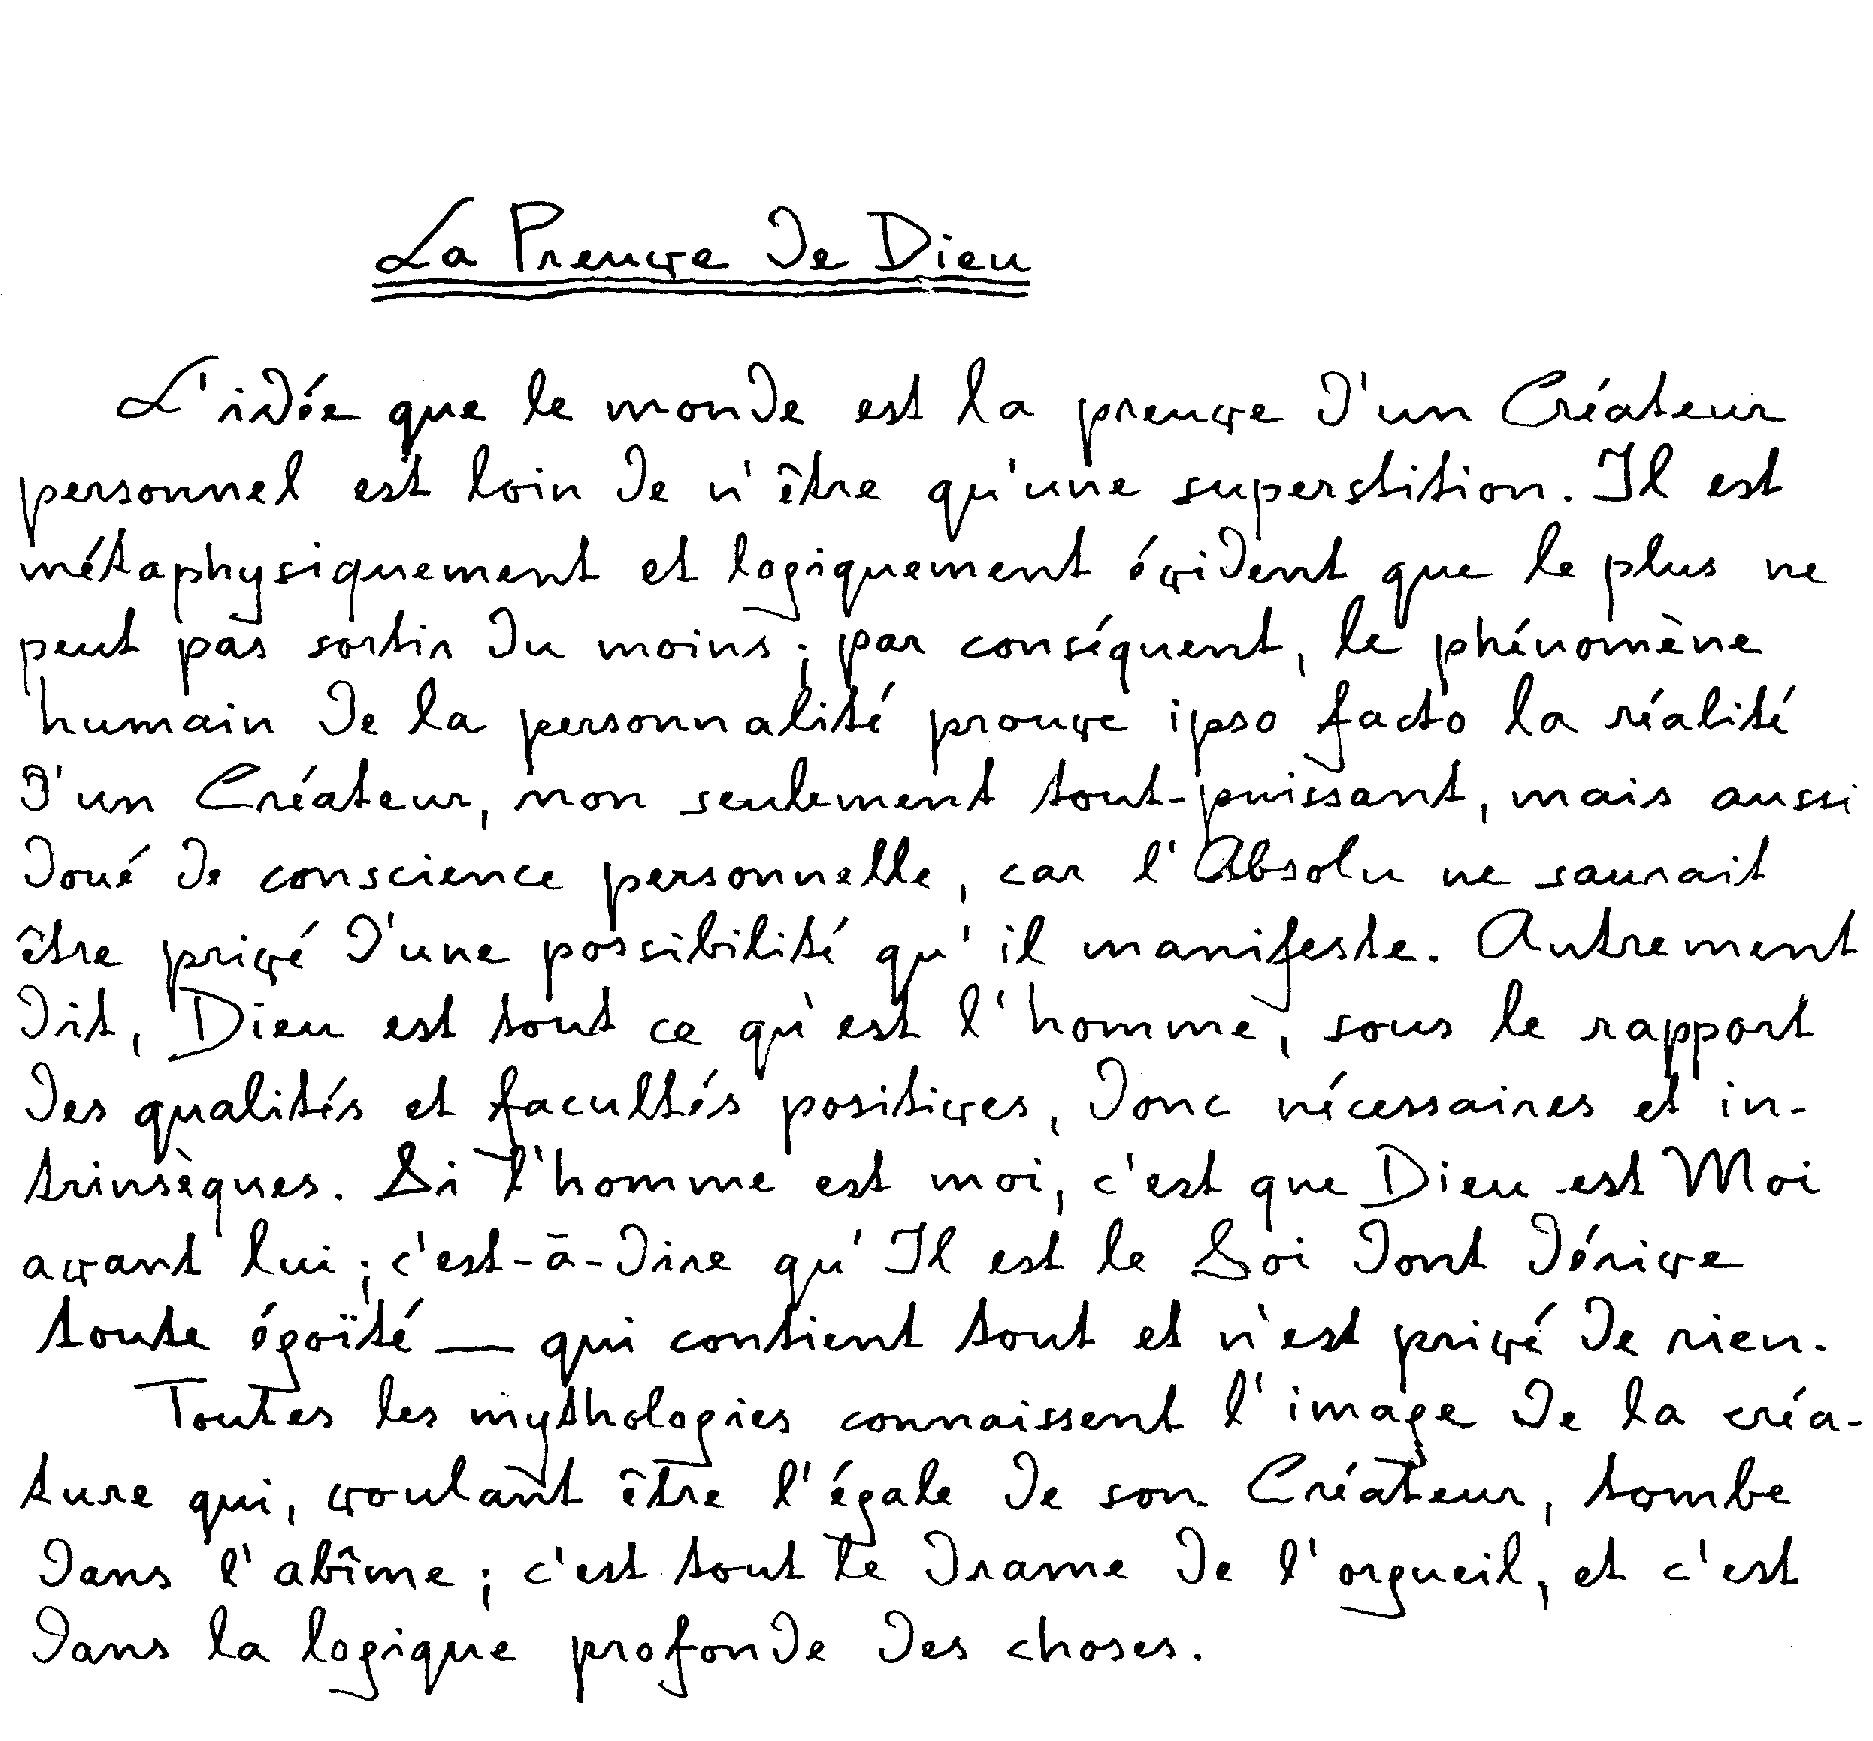 La Preuve de Dieu
L'idée que le monde est la preuve d'un Créateur
personnel est loin de n'être qu'une superstition. Il est
métaphysiquement et logiquement évident que le plus ne
peut pas sortir du moins ; par conséquent, le phénomène
humain de la personnalité prouve ipso facto la réalité
d'un Créateur, non seulement tout-puissant, mais aussi
doué de conscience personnelle, car l'Absolu ne saurait
être privé d'une possibilité qu'il manifeste. Autrement
dit, Dieu est tout ce qu'est l'homme, sous le rapport
des qualités et facultés positives, donc nécessaires et in-
trinsèques. Si l'homme est moi, c'est que Dieu est Moi
avant lui ; c'est-à-dire qu'Il est le Soi dont dérive
toute égoïté — qui contient tout et n'est privé de rien.
Toutes les mythologies connaissent l'image de la créa-
ture qui, voulant être l'égale de son Créateur, tombe
dans l'abîme ; c'est tout le drame de l'orgueil, et c'est
dans la logique profonde des choses.